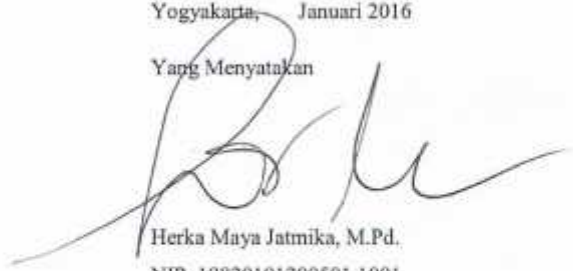 Yogyakarta, Januari 2016
Yang Menyatakan
Herka Maya Jatmika, M.Pd.
NIP.